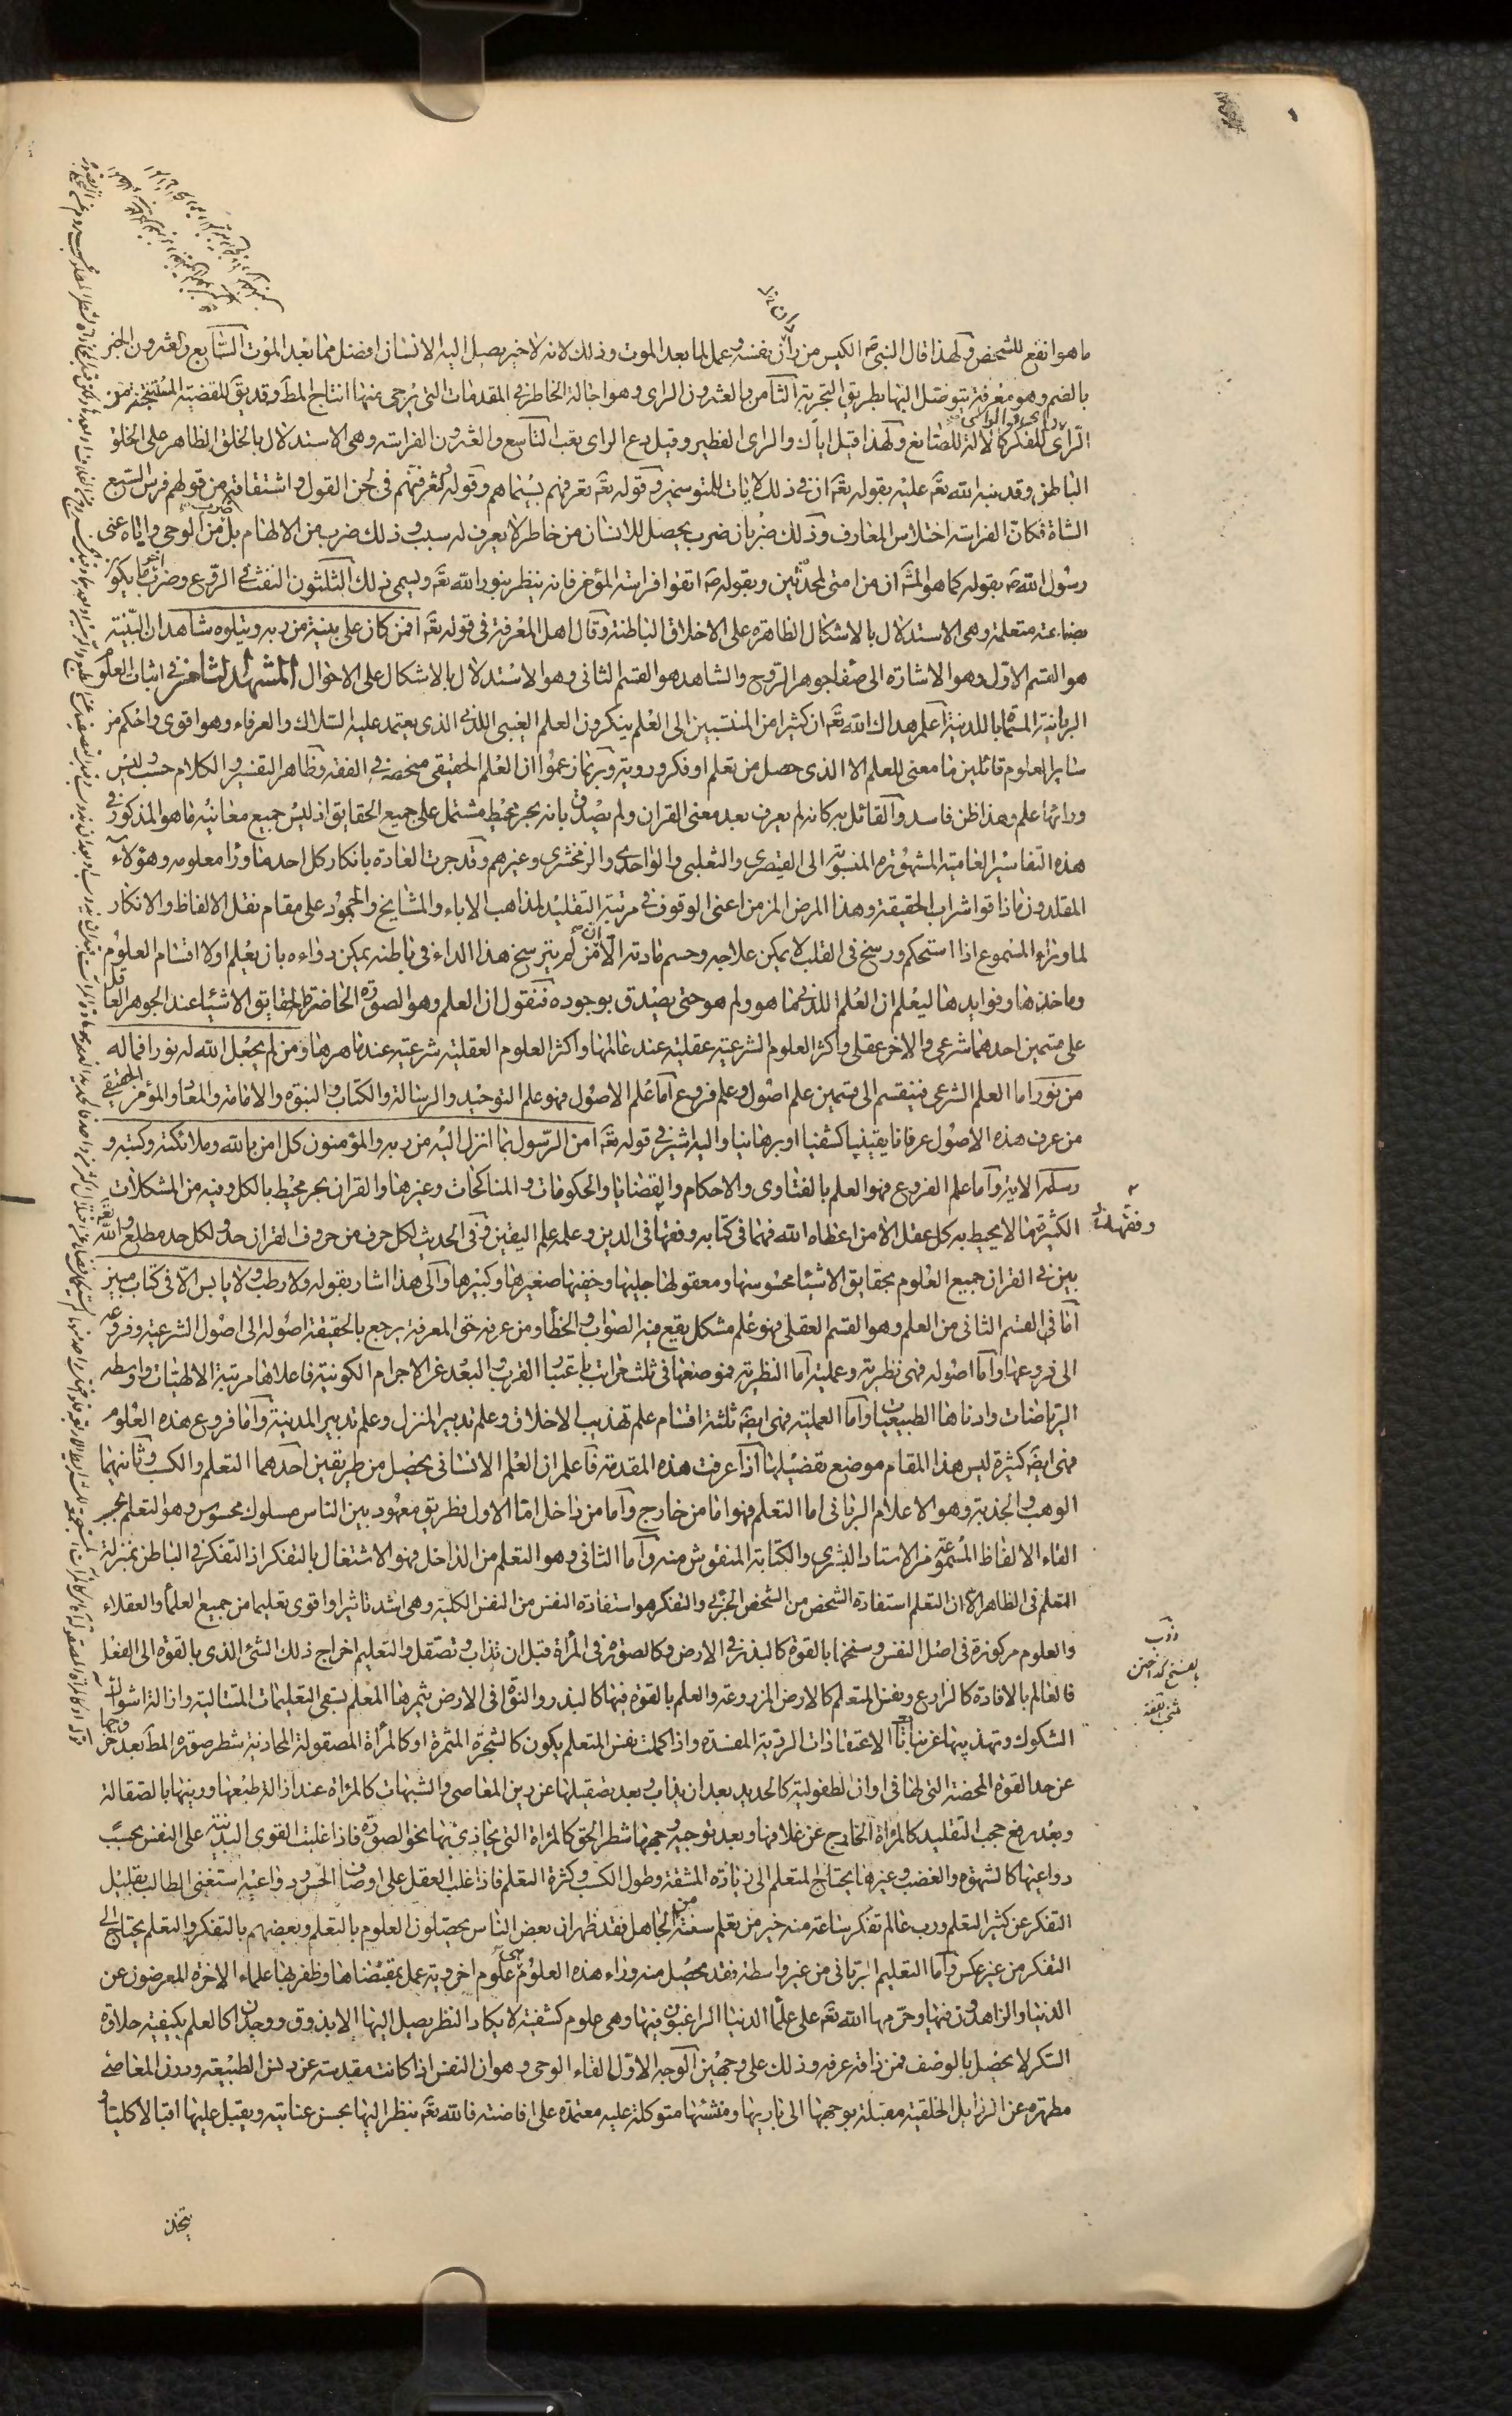 ما هو انفع للشخص ولهذا قال النبى ص الكيس من دان نفسه وعمل لما بعد الموت وذلك لانه لا خير يصل اليه الانسان افضل مما بعد الموت السابع والعشرون الخبر
بالضم وهو معرفة يتوصل اليها بطريق التجربة الثامن والعشرون الراى وهو اجالة الخاطر فى المقدمات التى يرجى منها انتاج المط وقد يق للقضية المستنتجة من
الراى والراى للفكر كالالة للصانع ولهذا قيل اياك والراى الفطير وقيل دع الراى يغب التاسع والعشرون الفراسة وهى الاستدلال بالخلق الظاهر على الخلق
الباطن وقد نبه الله تعه عليه بقوله تعه ان فى ذلك لايات للمتوسمين وقوله تعه تعرفهم بسيماهم وقوله ولتعرفنهم فى لحن القول واشتقاقه من قولهم فرس السبع
الشاة فكان الفراسة اختلاس المعارف وذلك ضربان ضرب يحصل للانسان من خاطر لا يعرف له سبب وذلك ضرب من الالهام بل ضرب من الوحى واياه عنى
رسول الله ص بقوله كما هو المش ان من امتى لمحدثين وبقوله ص اتقوا فراسة المؤمن فانه ينظر بنور الله تعه ويسمى ذلك الثلثون النفث فى الروع وضرب ما يكون
بصناعة متعلمة وهى الاستدلال بالاشكال الظاهرة على الاخلاق الباطنة وقال اهل المعرفة فى قوله تعه افمن كان على بينة من ربه ويتلوه شاهد ان البينة
هو القسم الاول وهو الاشارة الى صفا جوهر الروح والشاهد هو القسم الثانى وهو الاستدلال بالاشكال على الاحوال المشهد الثامن فى اثبات العلوم
الربانية المسماة باللدنية اعلم هداك الله تعه ان كثيرا من المنتسبين الى العلم ينكرون العلم الغيبى اللدنى الذى يعتمد عليه السلاك والعرفاء وهو اقوى واحكم من
ساير العلوم قائلين ما معنى للعلم الا الذى حصل من تعلم او فكر وروية وربما زعموا ان العلم الحقيقى منحصر فى الفقه وظاهر التفسير والكلام حسب وليس
ورائها علم وهذا ظن فاسد والقائل به كانه لم يعرف بعد معنى القران ولم يصدق بانه بحر محيط مشتمل على جميع الحقايق اذ ليس جميع معانيه ما هو المذكور فى
هذه التفاسير العامية المشهورة المنسوبة الى القيصرى والثعلبى والواحدى والزمخشرى وغيرهم وقد جرت العادة بانكار كل احد ما وراء معلومه وهؤلاء
المقلدون ماذاقوا شراب الحقيقة وهذا المرض المزمن اعنى الوقوف فى مرتبة التقليد لمذاهب الاباء والمشايخ والجمود على مقام نقل الالفاظ والانكار
لما وراء المسموع اذا استحكم ورسخ فى القلب لا يمكن علاجه وحسم مادته الا من لم يترسخ هذا الداء فى باطنه يمكن دواءه بان يعلم اولا اقسام العلوم
وماخذها وفوايدها ليعلم ان العلم اللدنى ما هو ولم هو حتى يصدق بوجوده فنقول ان العلم وهو الصورة الحاضرة لحقايق الاشياء عند الجوهر العاقل
على قسمين احدهما شرعى والاخر عقلى واكثر العلوم الشرعية عقلية عند عالمها واكثر العلوم العقلية شرعية عند ماهرها ومن لم يجعل الله له نورا فما له
من نور اما العلم الشرعى فينقسم الى قسمين علم اصول وعلم فروع اما علم الاصول فهو علم التوحيد والرسالة والكتاب والنبوة والامامة والمعاد والمؤمن الحقيقى
من عرف هذه الاصول عرفانا يقينيا كشفيا او برهانيا واليه اشير فى قوله تعه امن الرسول بما انزل اليه من ربه والمؤمنون كل امن بالله وملائكته وكتبه و
رسله الاية واما علم الفروع فهو العلم بالفتاوى والاحكام والقضايا والحكومات والمناكحات وغيرها والقران بحر محيط بالكل وفيه من المشكلات
الكثيرة ما لا يحيط به كل عقل الا من اعطاه الله فهما فى كتابه وفقها فى الدين وعلمه علم اليقين وفى الحديث لكل حرف من حروف القران حد ولكل حد مطلع والله تعه
بين فى القران جميع العلوم بحقايق الاشياء محسوسها ومعقولها جليها وخفيها صغيرها وكبيرها والى هذا اشار بقوله ولا رطب ولا يابس الا فى كتاب مبين
اما فى القسم الثانى من العلم وهو القسم العقلى فهو علم مشكل يقع فيه الصواب والخطأ ومن عرفه حق المعرفة يرجع بالحقيقة اصوله الى اصول الشرعية وفروعه
الى فروعها واما اصوله فهى نظرية وعملية اما النظرية فموضعها فى ثلث مراتب باعتبار القرب والبعد عن الاجرام الكونية فاعلاها مرتبة الالهيات واوسطه
الرياضات وادناها الطبيعيات واما العملية فهى ايضه ثلثة اقسام علم تهذيب الاخلاق وعلم تدبير المنزل وعلم تدبير المدينة واما فروع هذه العلوم
فهى ايضه كثيرة ليس هذا المقام موضع تفصيلها اذا عرفت هذه المقدمة فاعلم ان العلم الانسانى يحصل من طريقين احدهما التعلم والكسب وثانيهما
الوهب والجذبة وهو الاعلام الربانى اما التعلم فهو اما من خارج واما من داخل اما الاول فطريق معهود بين الناس مسلوك محسوس وهو التعلم بحسب
القاء الالفاظ المسموعة من الاستاد البشرى والكتابة المنقوش منه واما الثانى وهو التعلم من الداخل فهو الاشتغال بالتفكر اذ التفكر فى الباطن بمنزلة
التعلم فى الظاهر الا ان التعلم استفادة الشخص من الشخص الجزئى والتفكر هو استفادة النفس من النفس الكلية وهى اشد تاثيرا واقوى تعليما من جميع العلماء والعقلاء
والعلوم مركوزة فى اصل النفس وسنخها بالقوة كالبذر فى الارض وكالصورة فى المرأة قبل ان تذاب وتصقل والتعليم اخراج ذلك الشئ الذى بالقوة الى الفعل
فالعالم بالافادة كالزارع ونفس المتعلم كالارض المزروعة والعلم بالقوة فيها كالبذر والنواة فى الارض يثمرها المعلم بسقى التعليمات المتتالية وازالة اشواك
الشكوك وتهذيبها عن نباتات الاعتقادات الردية المفسدة واذا كملت نفس المتعلم يكون كالشجرة المثمرة او كالمرأة المصقولة المحاذية شطر صورة المط بعد خروجها
عن حد القوة المحضة التى لها فى اوان الطفولية كالحديد بعد ان يذاب وبعد تصقيلها عن رين المعاصى والشبهات كالمرأة عند ازالة طبعها ورينها بالصقالة
وبعد رفع حجب التقليد كالمرأة الخارج عن غلافها وبعد توجيه وجهها شطر الحق كالمرأة التى يحاذى بها نحو الصورة فاذا غلبت القوى البدنية على النفس بحسب
دواعيها كالشهوة والغضب وغيرها يحتاج المتعلم الى زيادة المشقة وطول الكسب وكثرة التعلم فاذا غلب العقل على اوصاف الحس ودواعيه استغنى الطالب بقليل
التفكر عن كثير التعلم ورب عالم تفكر ساعة منه خير من تعلم سنة من الجاهل فقد ظهر ان بعض الناس يحصلون العلوم بالتعلم وبعضهم بالتفكر والتعلم يحتاج الى
التفكر من غير عكس واما التعليم الربانى من غير واسطة فقد يحصل منه وراء هذه العلوم علوم اخروية عمل بمقتضاها وظفر بها علماء الاخرة المعرضون عن
الدنيا والزاهدون فيها وحرمها الله تعه على علماء الدنيا الراغبون فيها وهى علوم كشفية لا يكاد النظر يصل اليها الا بذوق ووجدان كالعلم بكيفية حلاوة
السكر لا يحصل بالوصف فمن ذاقه عرفه وذلك على وجهين الوجه الاول القاء الوحى وهو ان النفس اذا كانت مقدسة عن دنس الطبيعة ودرن المعاصى
مطهرة عن الرذايل الخلقية مقبلة بوجهها الى باريها ومنشئها متوكلة عليه معتمدة على افاضته فالله تعه ينظر اليها بحسن عنايته ويقبل عليها اقبالا كليا و
يتخذ
وفقهه
ذوب
بالفتح كداختن
منتخب اللغة